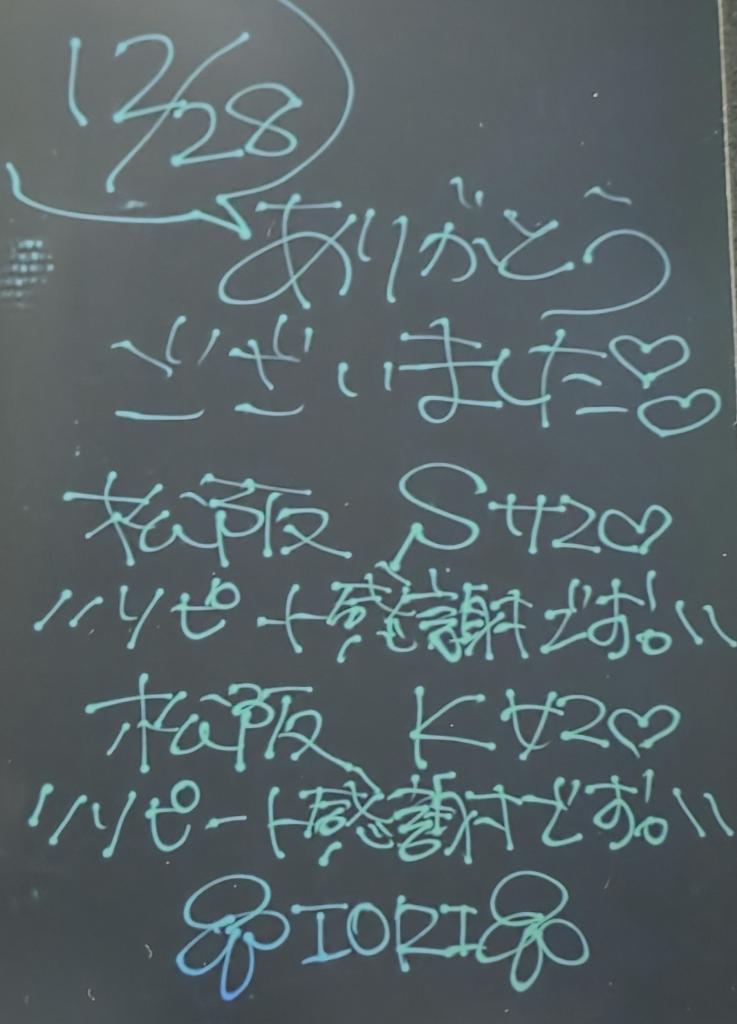 12/28
ありがとう
ございました♡♡
松阪 Sサン♡
〃リピート感謝です。〃
松阪 Kサン♡
〃リピート感謝です。〃
IORI